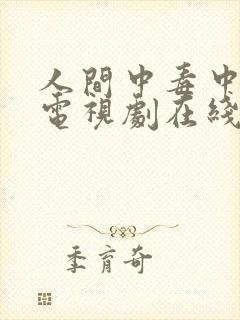 人間中毒中
電視劇在綫
季育奇